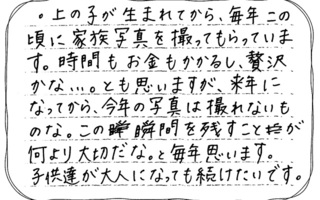 ・上の子が生まれてから、毎年この
頃に家族写真を撮ってもらっていま
す。時間もお金もかかるし、贅沢
かな…。とも思いますが、来年に
なってから、今年の写真は撮れないも
のな。この瞬間を残すことが
何より大切だな。と毎年思います。
子供達が大人になっても続けたいです。